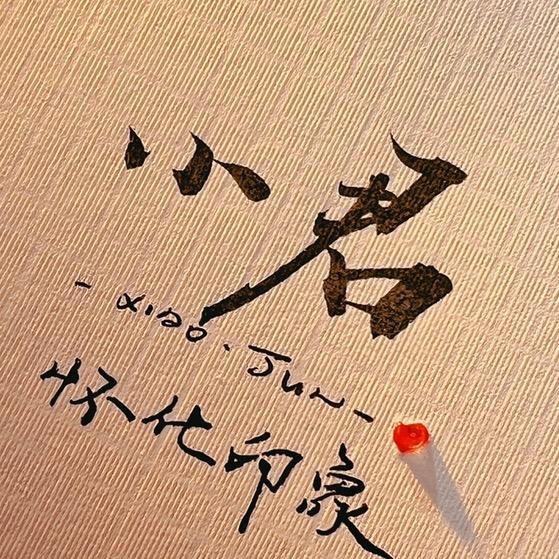 小君
- XIAO. JUN -
怀化印象